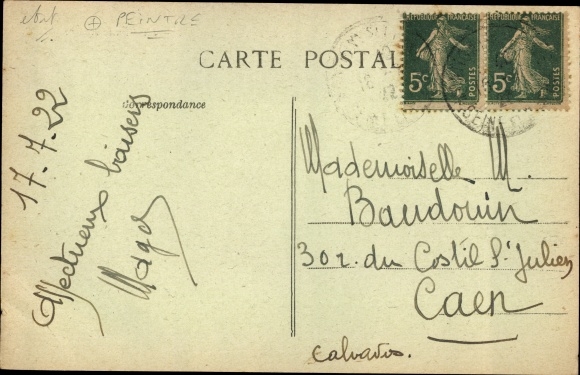 PEINTRE
CARTE POSTALE
RÉPUBLIQUE FRANÇAISE
5c
POSTES
RÉPUBLIQUE FRANÇAISE
5c
POSTES
Correspondance
17.7.22
Affectueux baisers
Mademoiselle M.
Baudouin
30 r. du Costil St Julien
Caen
Calvados.